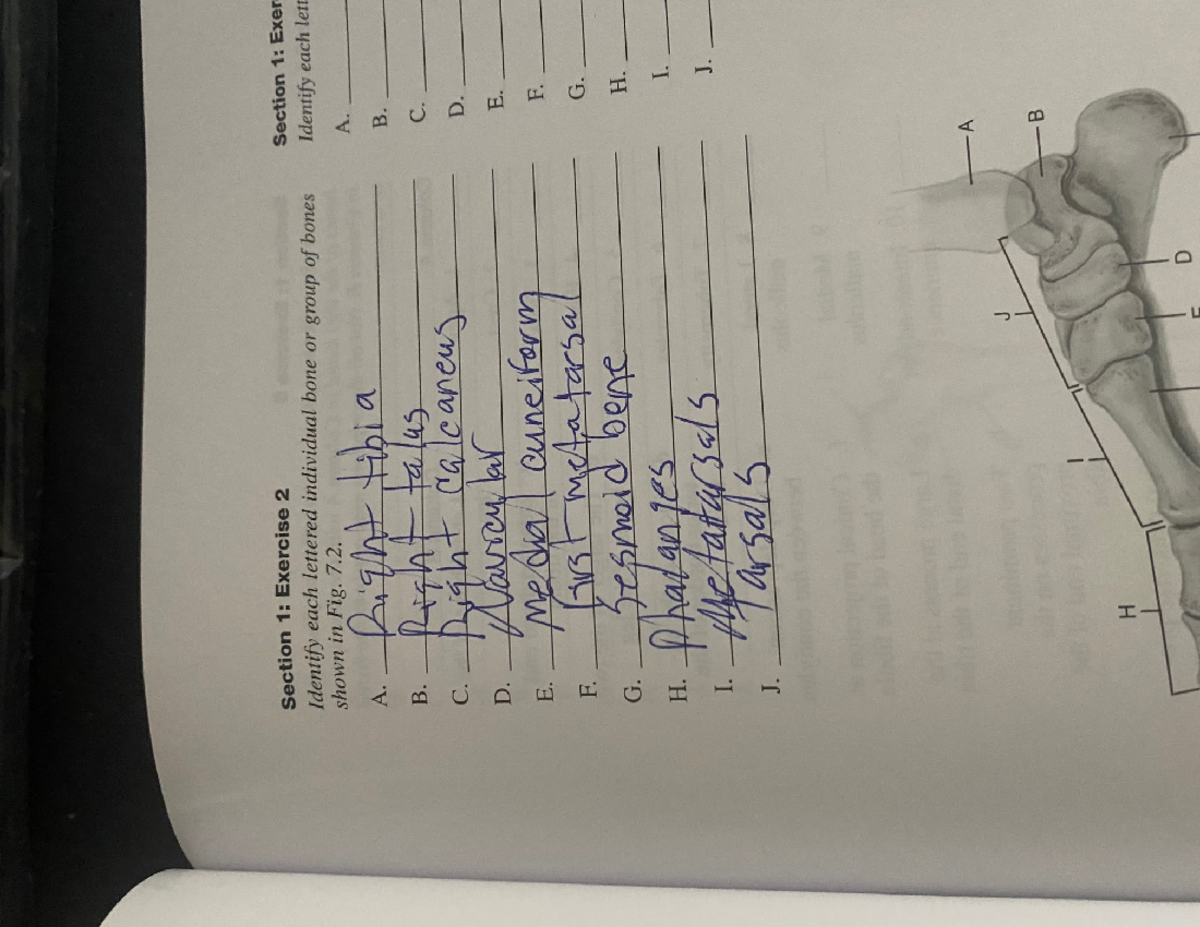 Section 1: Exercise 2
Identify each lettered individual bone or group of bones
shown in Fig. 7.2.
A. Right tibia
B. Right talus
C. Right calcaneus
D. Navicular
E. Medial cuneiform
F. first metatarsal
G. Sesmoid bone
H. Phalanges
I. Metatarsals
J. Tarsals
Section 1: Exer
Identify each lett
A.
B.
C.
D.
E.
F.
G.
H.
I.
J.
A
B
D
E
J
I
H